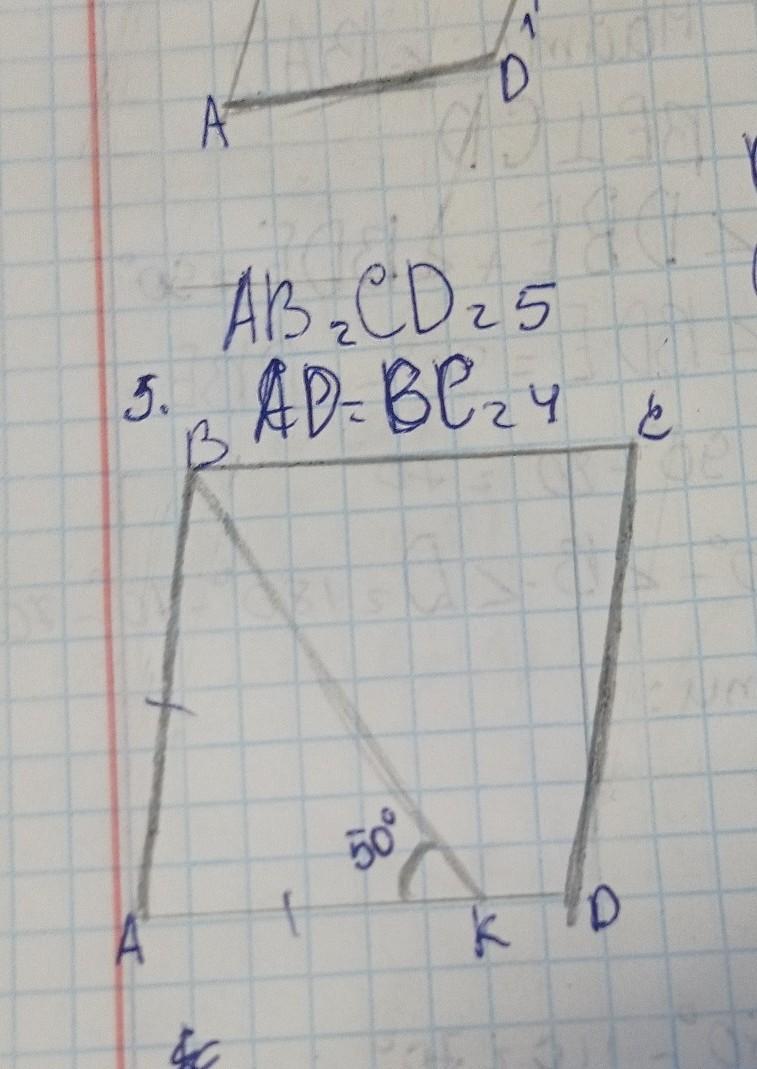 1
A D
AB=CD=5
5. AD=BC=4
B C
50°
A K D